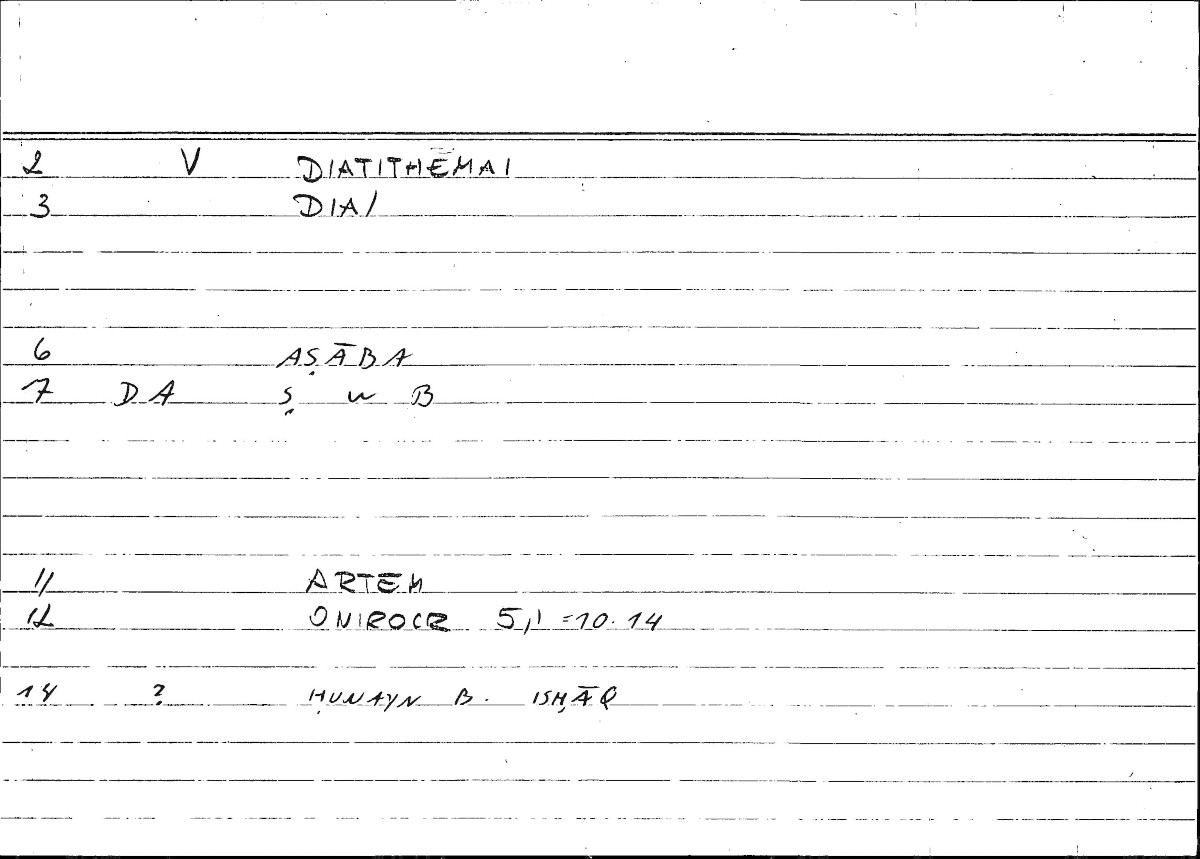 2 V DIATITHĒMAI
3 DIA/
6 AṢĀBA
7 DA Ṣ w B
11 ARTEM
12 ONIROCR 5,1 =10.14
14 ? ḤUNAYN B. ISḤĀQ